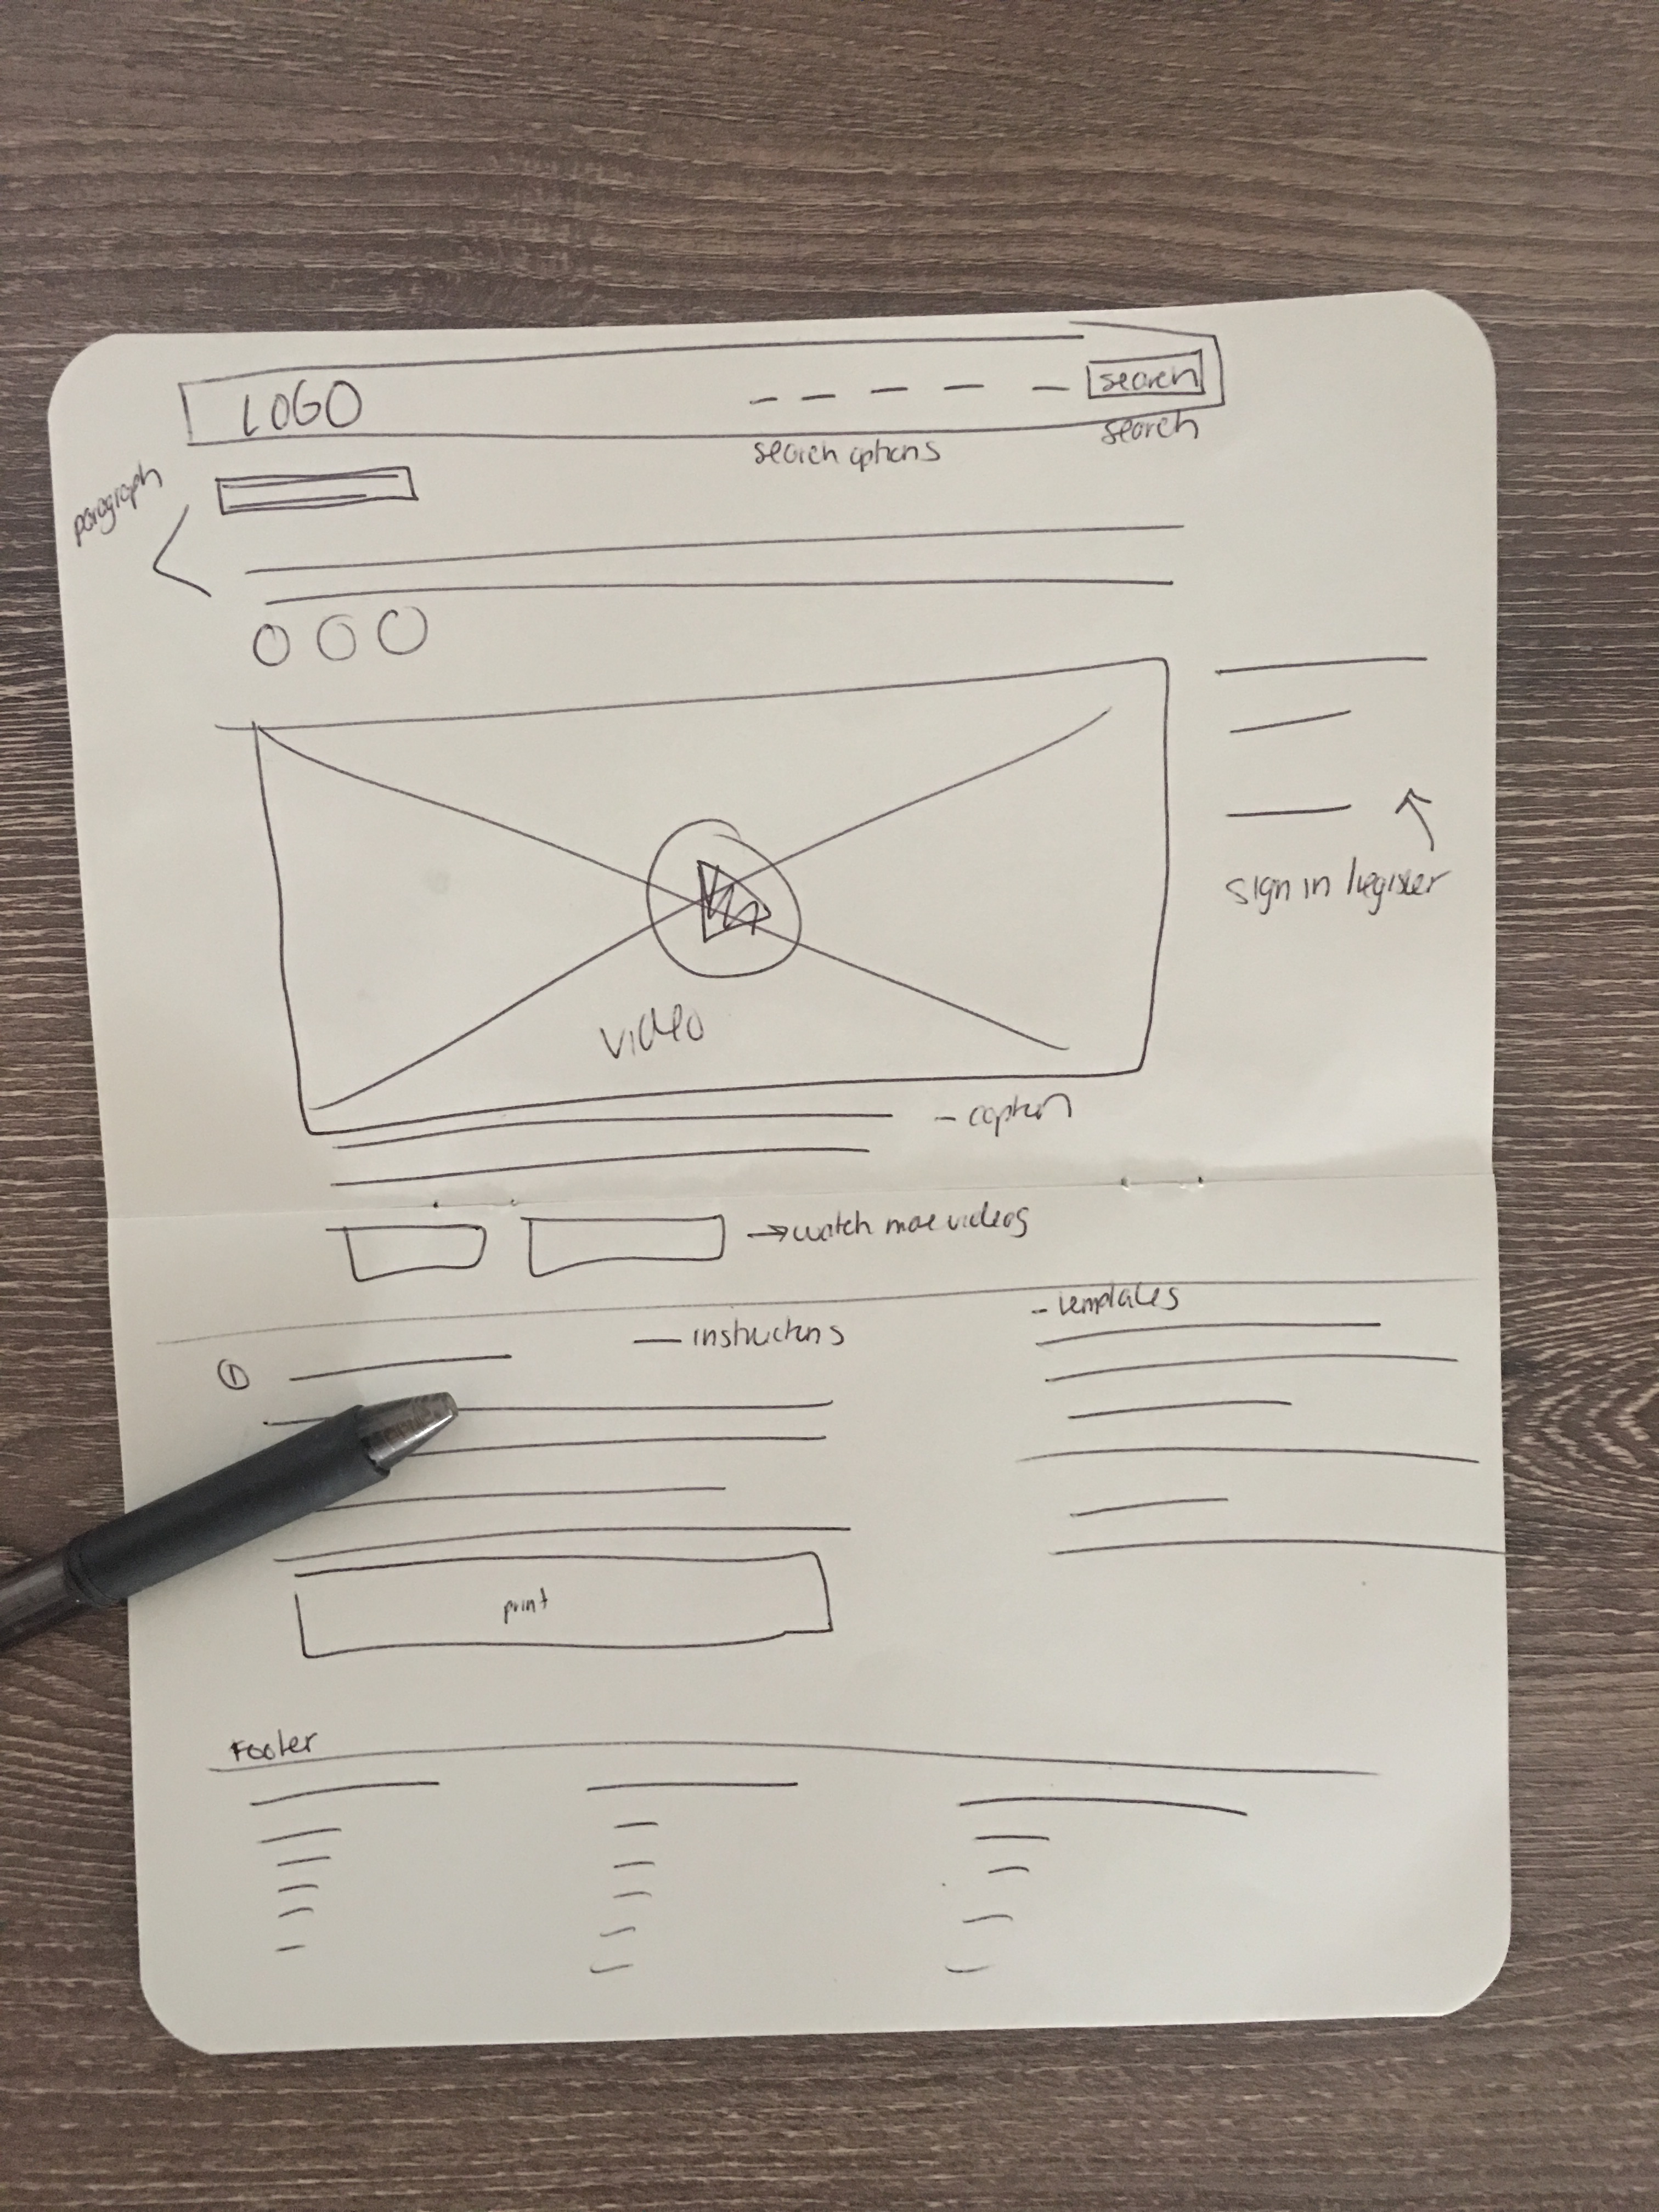 LOGO
search
search options
search
paragraph
sign in / register
video
- caption
→ watch more videos
- templates
- instructions
①
print
Footer